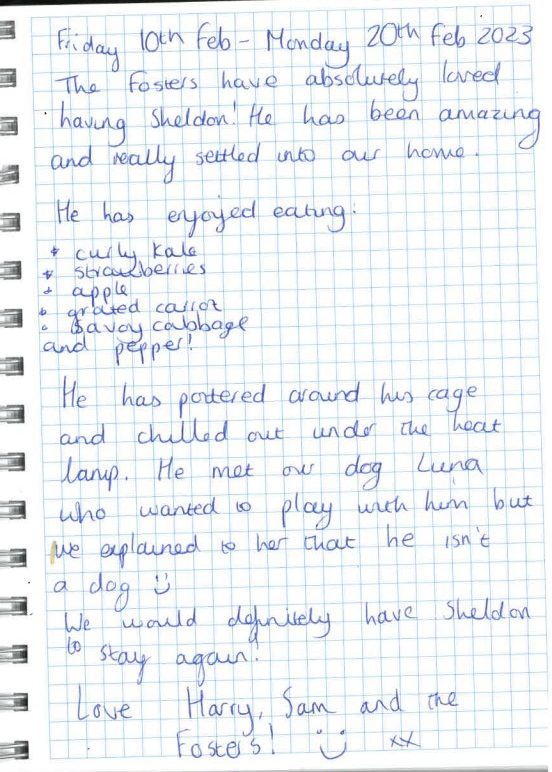 Friday 10th Feb - Monday 20th Feb 2023
The Fosters have absolutely loved
having Sheldon! He has been amazing
and really settled into our home.
He has enjoyed eating:
* curly kale
* strawberries
* apple
* grated carrot
* Savoy cabbage
and pepper!
He has pottered around his cage
and chilled out under the heat
lamp. He met our dog Luna
who wanted to play with him but
we explained to her that he isn't
a dog :)
We would definitely have Sheldon
to stay again!
Love Harry, Sam and the
Fosters! :) xx